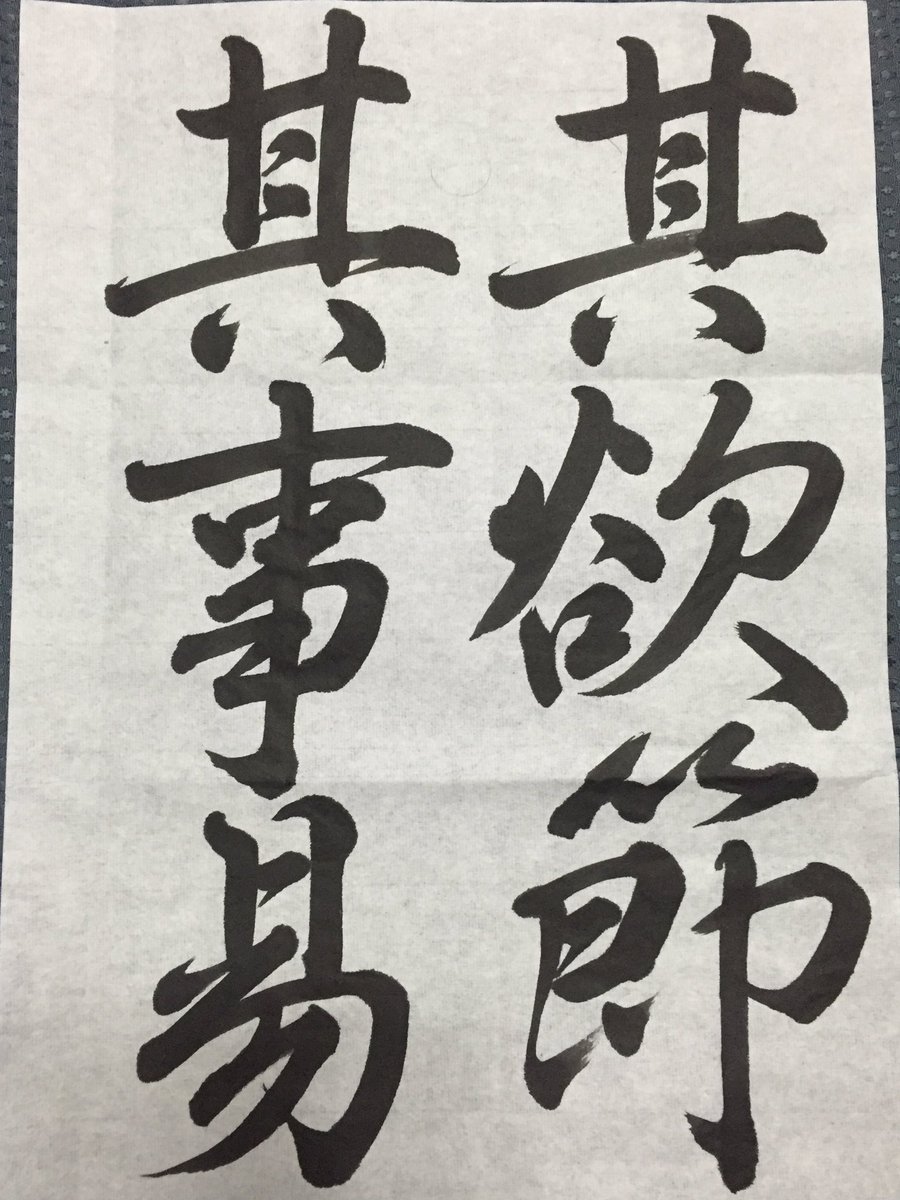 其欲節
其事易